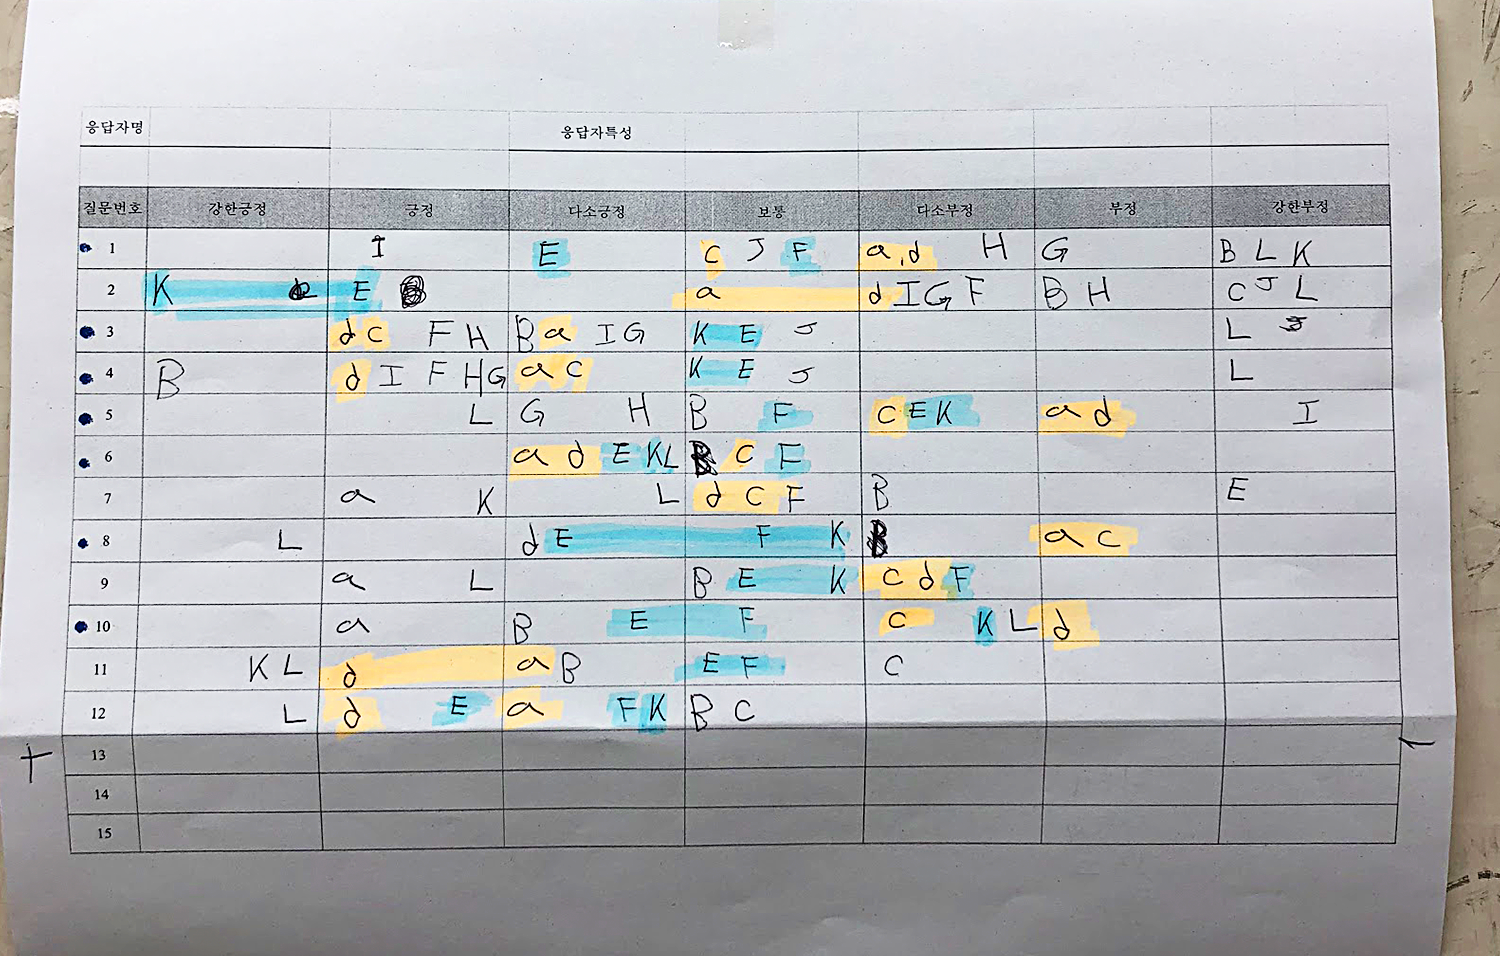 응답자명 응답자특성
질문번호 강한긍정 긍정 다소긍정 보통 다소부정 부정 강한부정
1 I E C J F a, d H G B L K
2 K E a d I G F B H C J L
3 d c F H B a I G K E J L
4 B d I F H G a c K E J L
5 L G H B F C E K a d I
6 a d E K L B C F
7 a K L d C F B E
8 L d E F K B a c
9 a L B E K C d F
10 a B E F C K L d
11 K L d a B E F C
12 L d E a F K B C
13
14
15